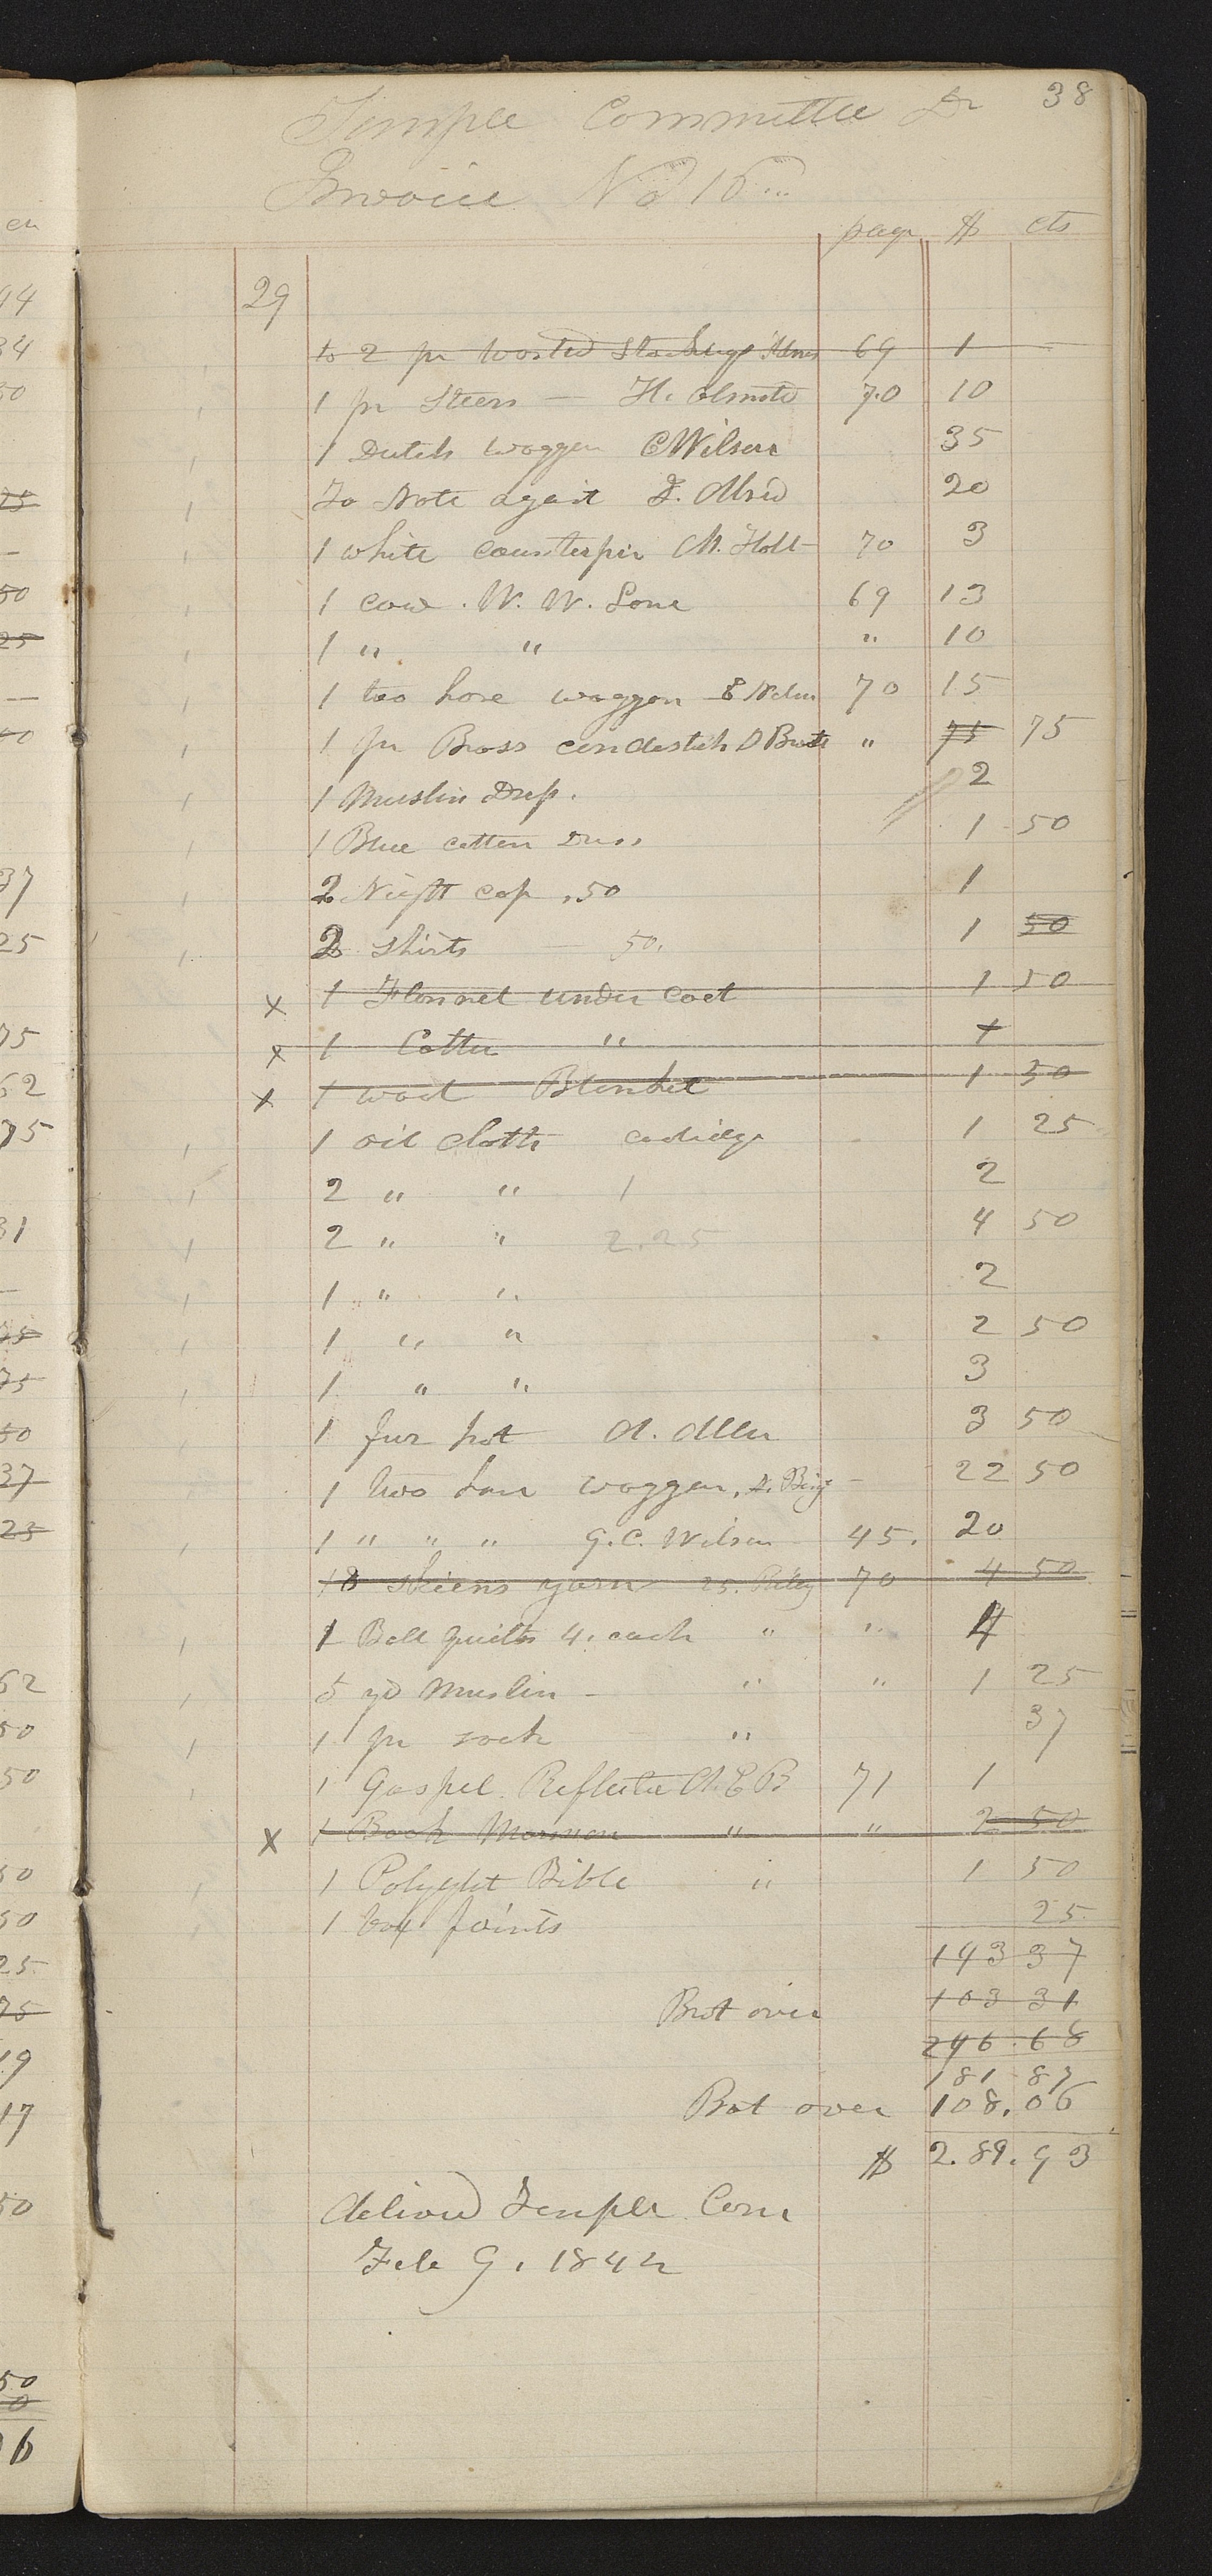 38
Temple Committee Dr
Invoice No 15
page $ cts
29
to 2 pr worsted 69 1
1 pr Steers — H. Olmstd 70 10
1 Dutch waggon C Wilson 35
To Note agait J. Alred 20
1 white counterpin M. Holt 70 3
1 cow. W. W. Lone 69 13
1 " " " 10
1 too hose waggon 70 15
1 pr Brass candestick D " 75 75
1 Muslin Dress. 2
1 Blue cotten Dress 1 50
2 Night cap .50 1
2 Shirts — 50. 1 50
x 1 Flannel under coat 1 50
x 1 Cotten " 1
x 1 wool Blanket 1 50
1 oil cloth 1 25
2 " " 1 2
2 " " 2.25 4 50
1 " " 2
1 " " 2 50
1 " " 3
1 fur hat A. Allen 3 50
1 two waggon, 22 50
1 " " " G. C. Wilson 45. 20
18 skiens yarn 25. 70 4 50
1 Bell quilts 4. each " " 4
5 yd Muslin — " " 1 25
1 pr sock " 37
1 Gospel Reflecter 71 1
x 1 Book Mormon " " 2 50
1 Polyglot Bible " 1 50
1 box 25
143 37
Brot over 103 31
246.68
181 87
Bot over 108.06
$ 2.89.93
delivd Temple Com
Feb 9. 1842